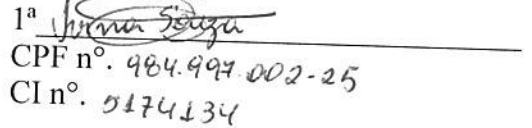 1ª Souza
CPF n°. 984.997.002-25
CI n°. 5174134